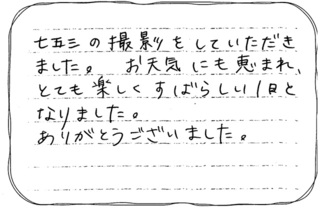 七五三の撮影をしていただき
ました。 お天気にも恵まれ、
とても楽しくすばらしい1日と
なりました。
ありがとうございました。